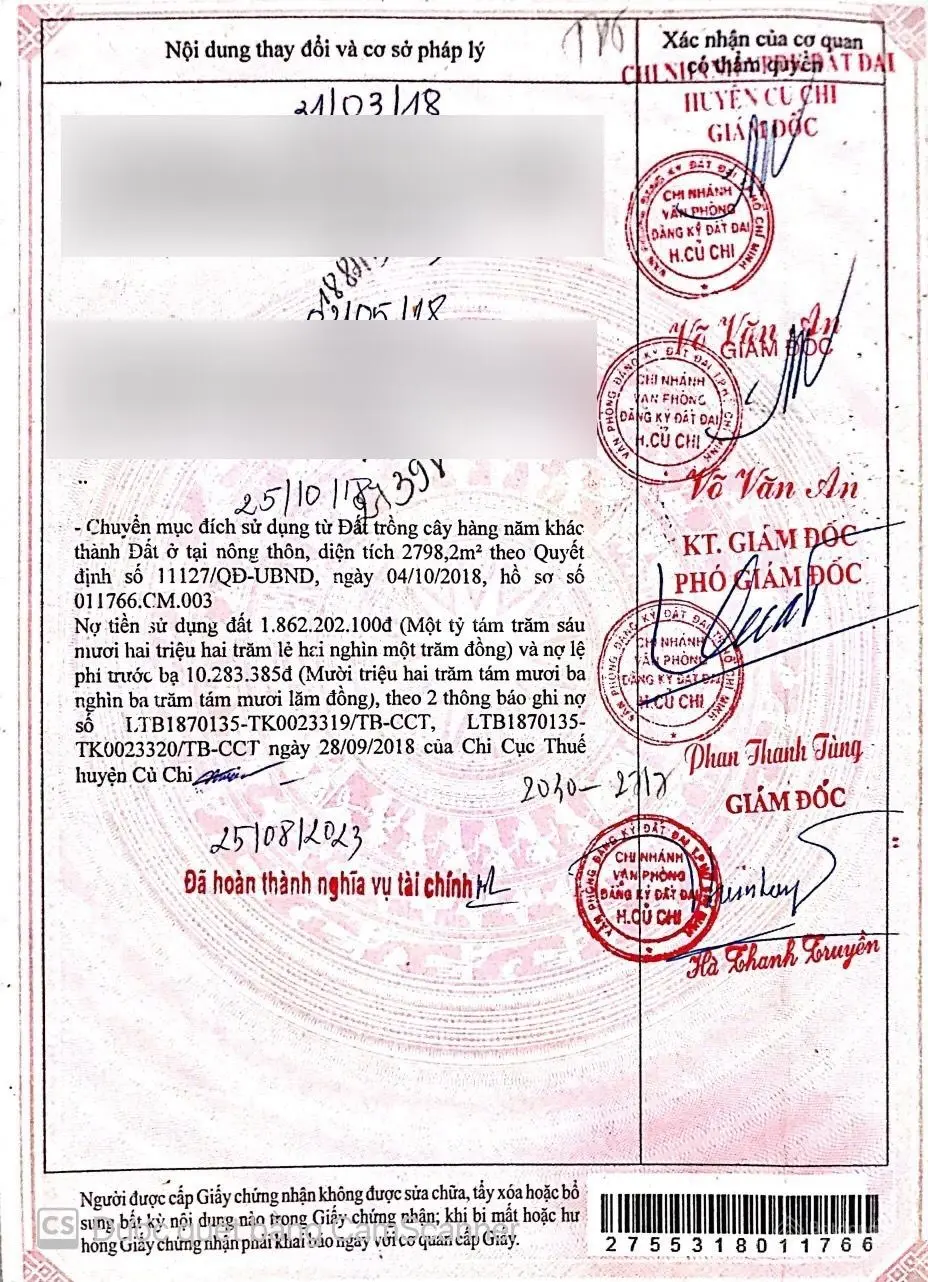 Nội dung thay đổi và cơ sở pháp lý
Xác nhận của cơ quan
có thẩm quyền
HUYỆN CỦ CHI
GIÁM ĐỐC
21/03/18
CHI NHÁNH
VĂN PHÒNG
ĐĂNG KÝ ĐẤT ĐAI
H.CỦ CHI
02/05/18
Võ Văn An
GIÁM ĐỐC
CHI NHÁNH
VĂN PHÒNG
ĐĂNG KÝ ĐẤT ĐAI
H.CỦ CHI
Võ Văn An
25/10/18
- Chuyển mục đích sử dụng từ Đất trồng cây hàng năm khác
thành Đất ở tại nông thôn, diện tích 2798,2m² theo Quyết
định số 11127/QĐ-UBND, ngày 04/10/2018, hồ sơ số
011766.CM.003
Nợ tiền sử dụng đất 1.862.202.100đ (Một tỷ tám trăm sáu
mươi hai triệu hai trăm lẻ hai nghìn một trăm đồng) và nợ lệ
phí trước bạ 10.283.385đ (Mười triệu hai trăm tám mươi ba
nghìn ba trăm tám mươi lăm đồng), theo 2 thông báo ghi nợ
số LTB1870135-TK0023319/TB-CCT, LTB1870135-
TK0023320/TB-CCT ngày 28/09/2018 của Chi Cục Thuế
huyện Củ Chi
KT. GIÁM ĐỐC
PHÓ GIÁM ĐỐC
CHI NHÁNH
VĂN PHÒNG
ĐĂNG KÝ ĐẤT ĐAI
H.CỦ CHI
Phan Thanh Tùng
25/08/2023
Đã hoàn thành nghĩa vụ tài chính
GIÁM ĐỐC
CHI NHÁNH
VĂN PHÒNG
ĐĂNG KÝ ĐẤT ĐAI
H.CỦ CHI
Hà Thanh Truyền
Người được cấp Giấy chứng nhận không được sửa chữa, tẩy xóa hoặc bổ
sung bất kỳ nội dung nào trong Giấy chứng nhận; khi bị mất hoặc hư
hỏng Giấy chứng nhận phải khai báo ngay với cơ quan cấp Giấy.
CS Được quét bằng CamScanner
275531801 1766